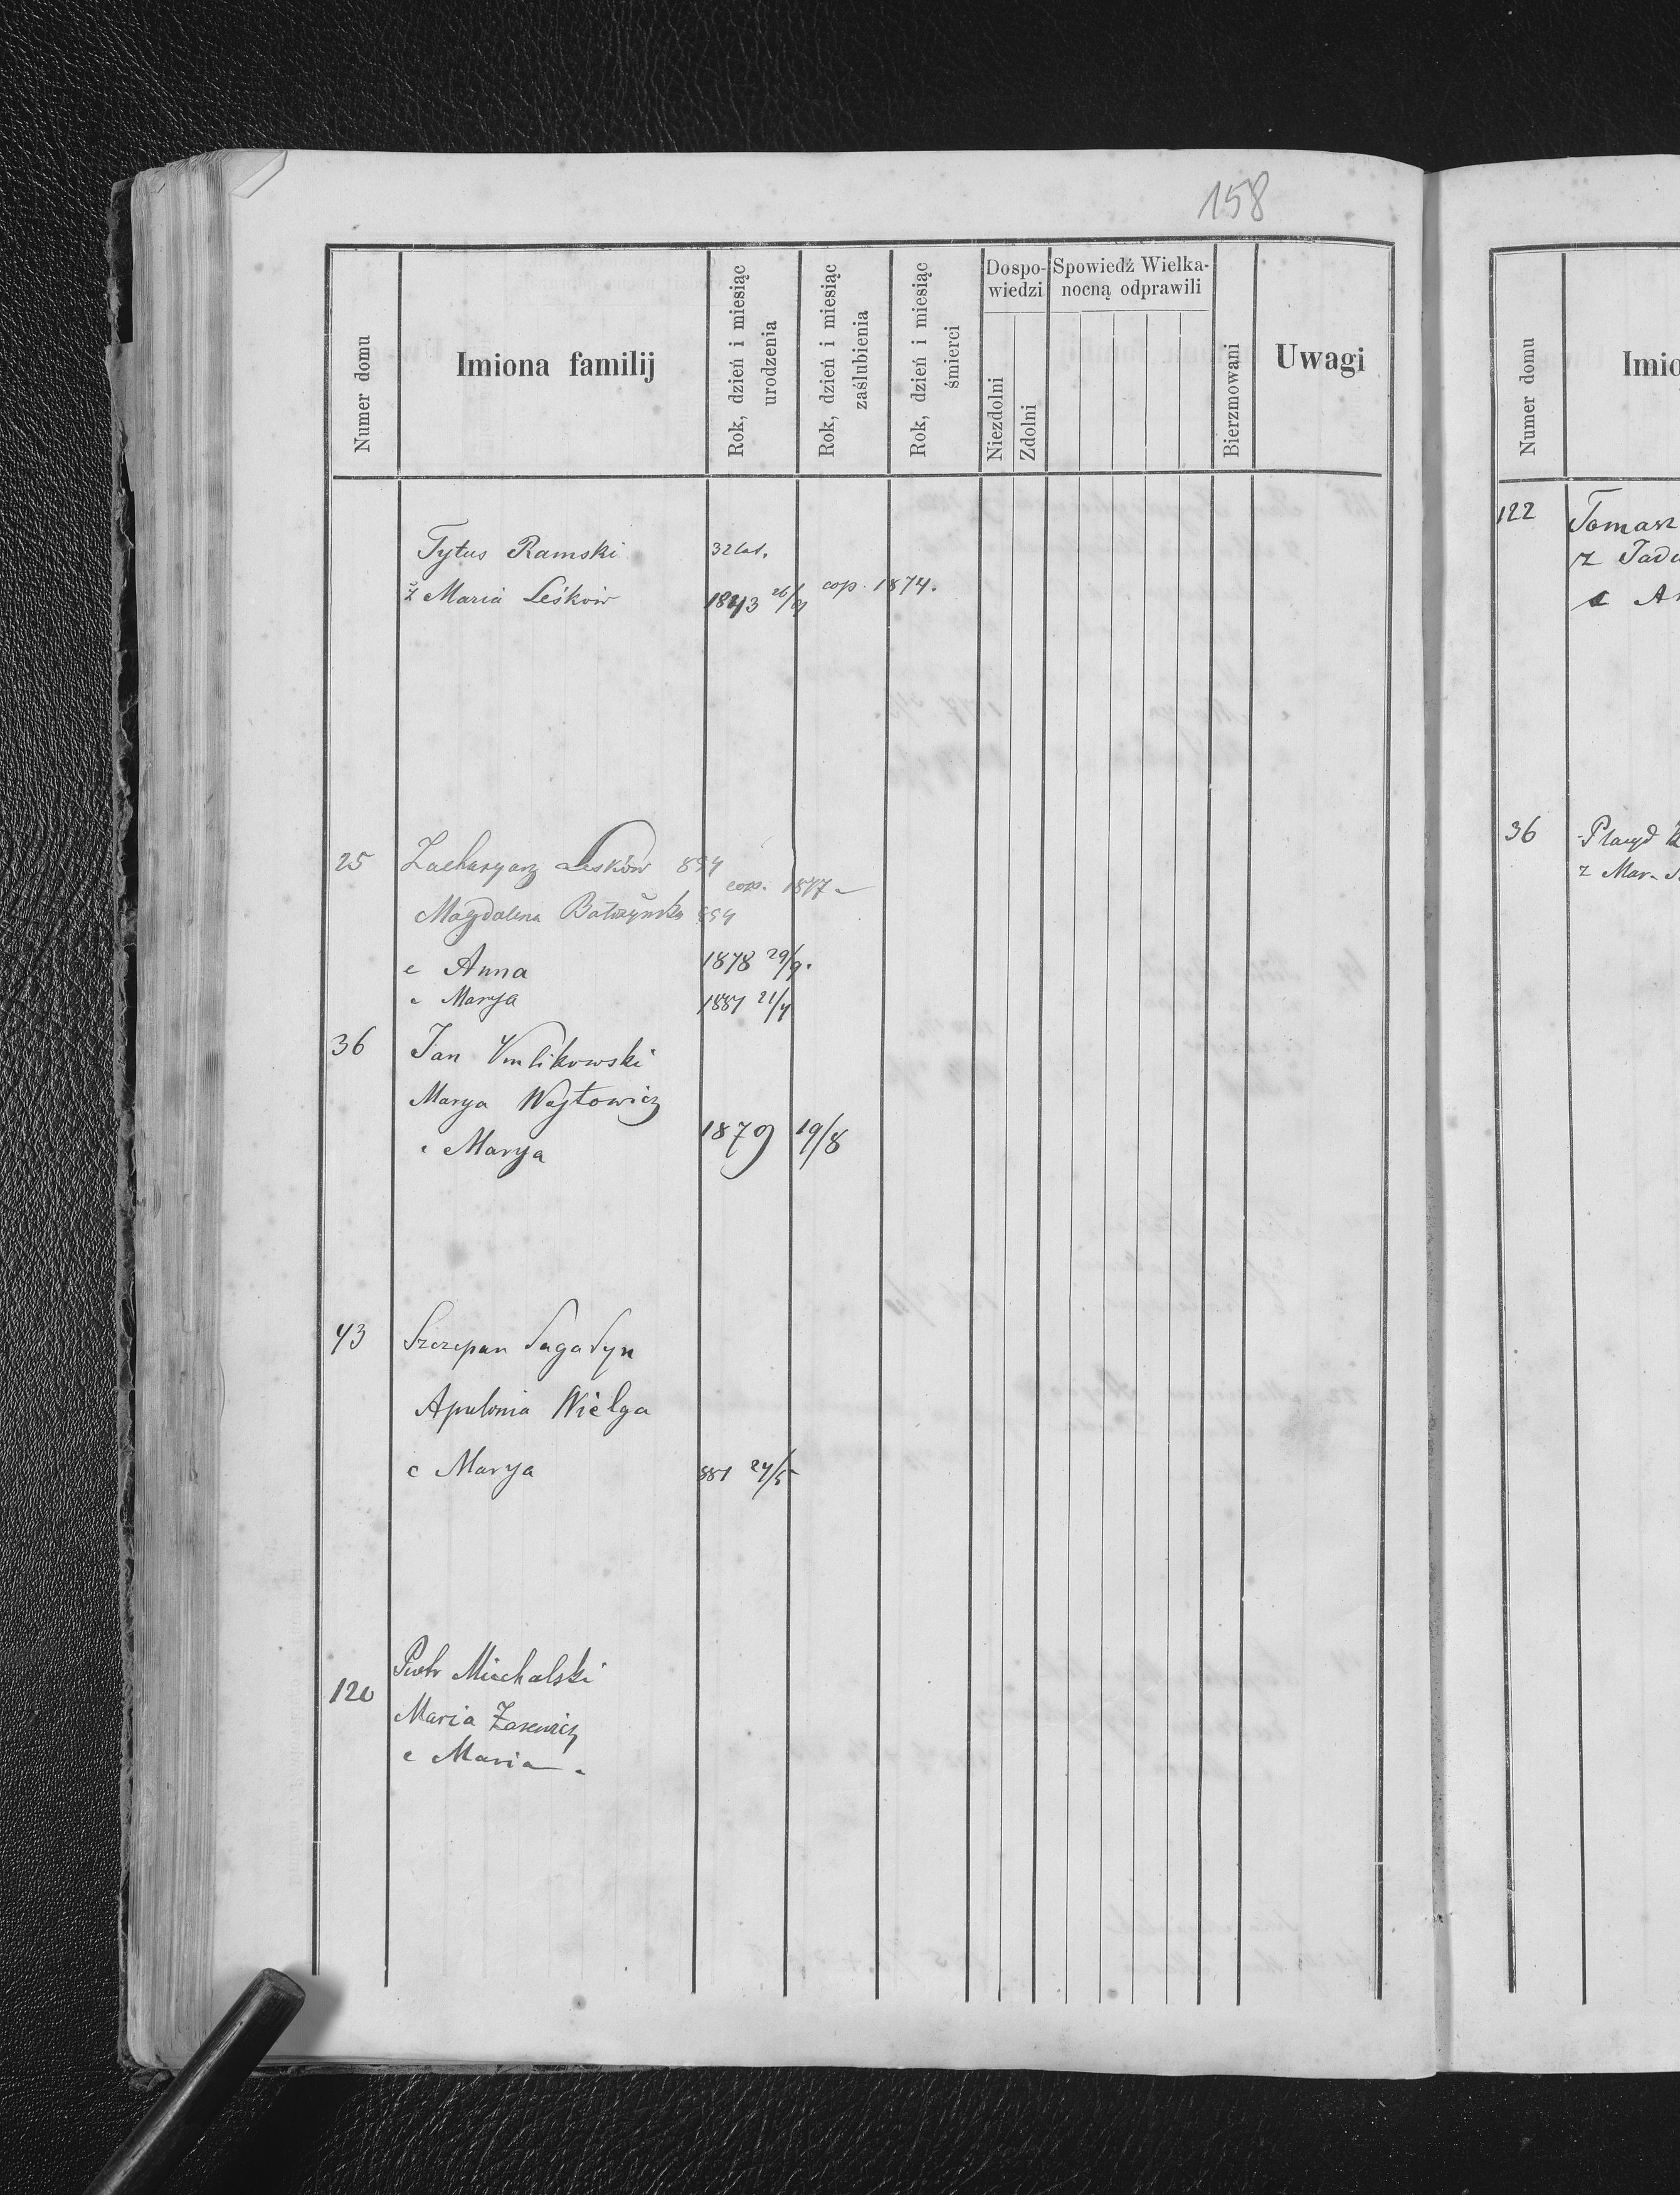 158
Numer domu
Imiona familij
Rok, dzień i miesiąc urodzenia
Rok, dzień i miesiąc zaślubienia
Rok, dzień i miesiąc śmierci
Dospo-
wiedzi
Niezdolni
Zdolni
Spowiedź Wielka-
nocną odprawili
Bierzmowani
Uwagi
Tytus Ramski 32 lat.
ż Maria Leśków 1843 26/9 cop. 1874.
25 Zacharyasz Lesków 854
cop. 1877
Magdalena 854
c Anna 1878 29/9.
c Marya 1881 21/4
36 Jan
Marya Wojtowicz
c Marya 1879 19/8
43 Szczepan
Apolonia Wielga
c Marya 881 24/5
120 Piotr Michalski
Maria
c Maria
Numer domu
Imio
122 Tomasz
z Jad
c A
36 Placyd
z Mar.